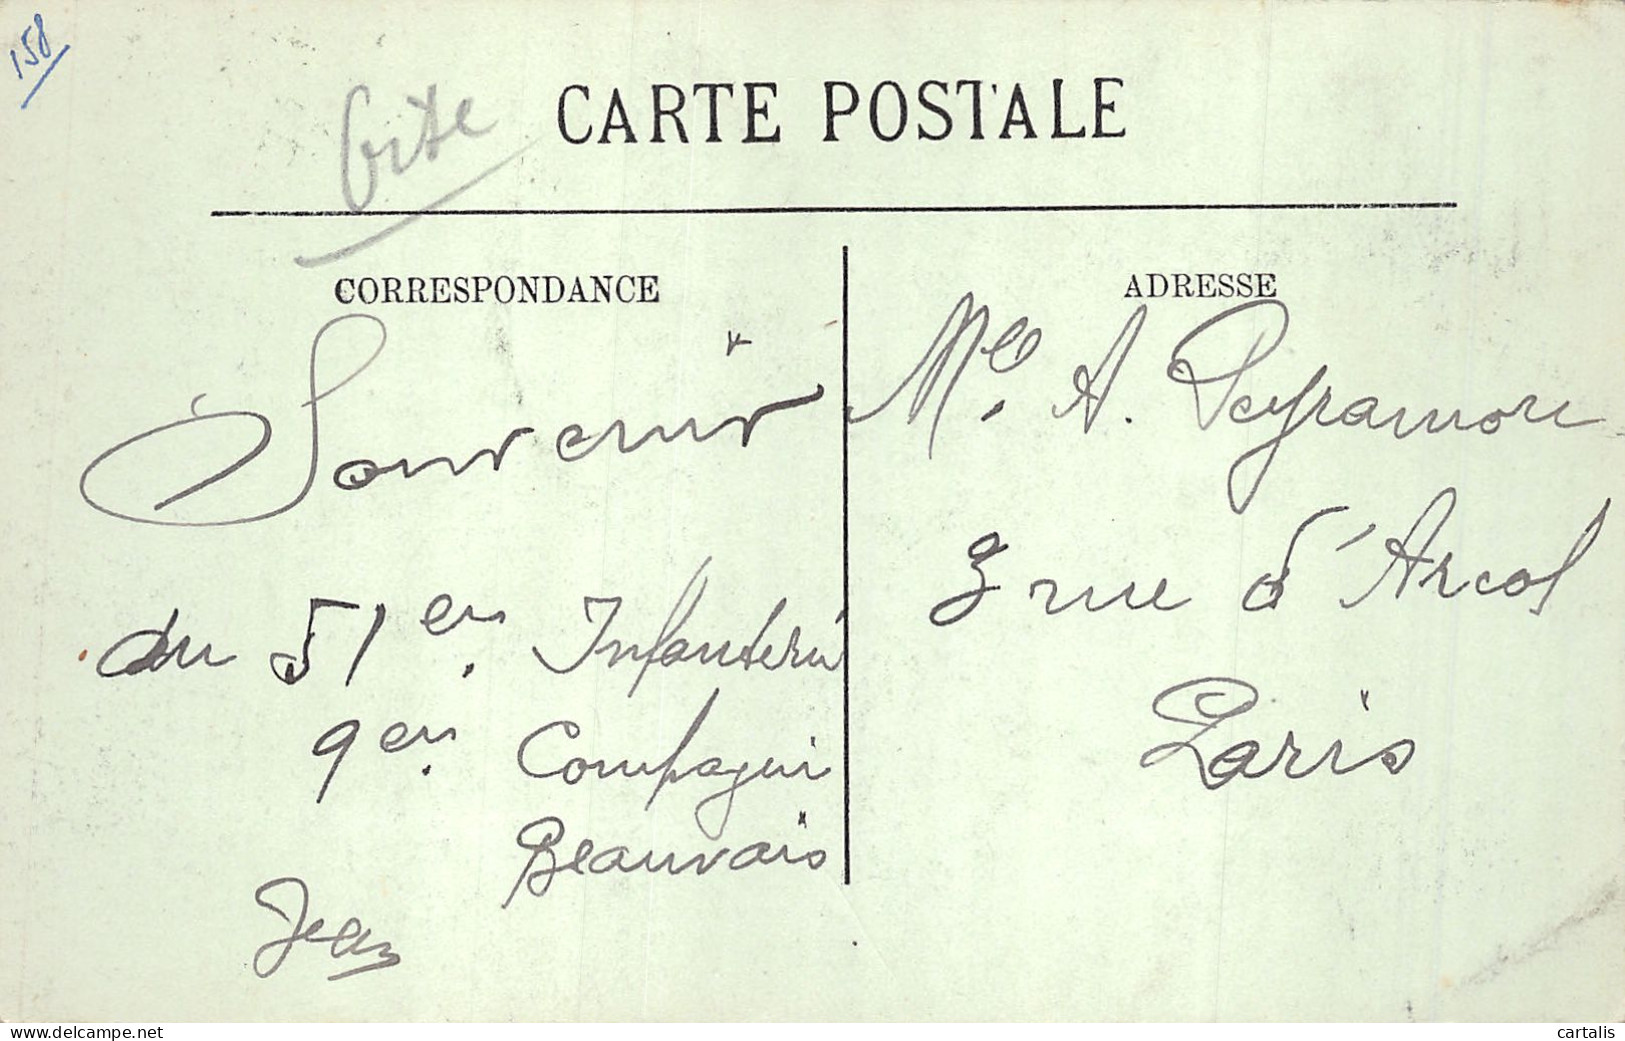 158
CARTE POSTALE
CORRESPONDANCE
Souvenir
du 51em Infanterie
9em Compagnie
Beauvais
Jean
ADRESSE
Mlle. A. Peyramore
3 rue d'Arcol
Paris
www.delcampe.net
cartalis